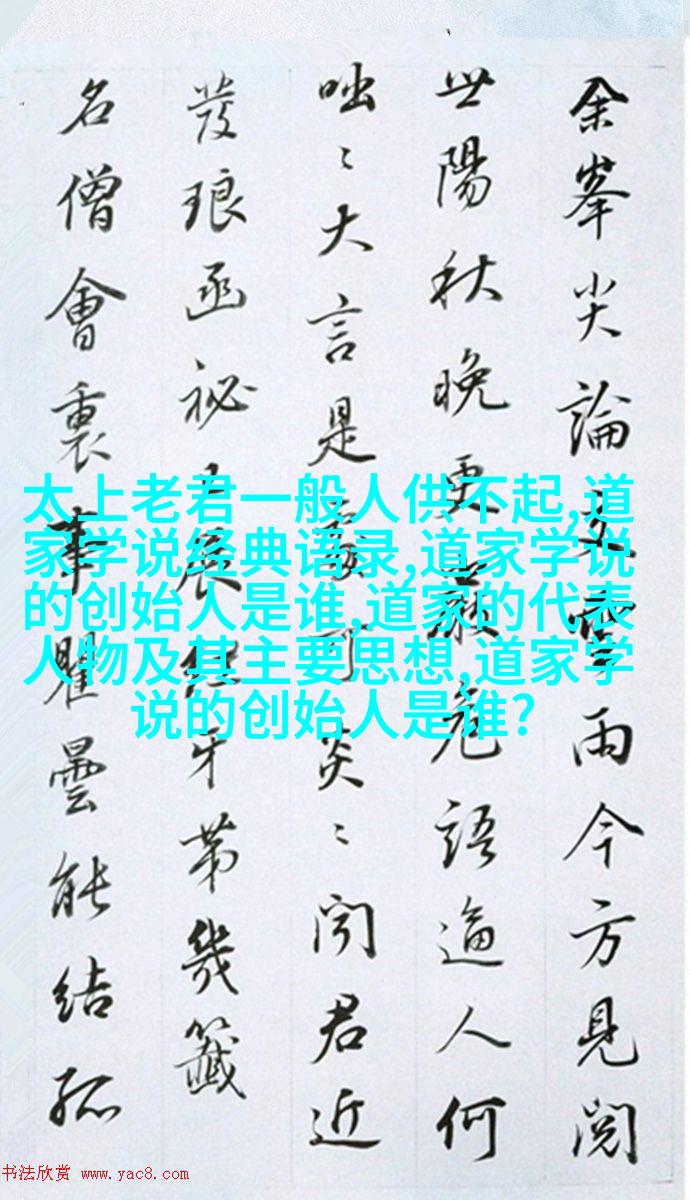 余峯尖論文雪雨今方見閲
世陽秋晚更嚴危語逼人何
咄〻大言是家可炎〻聞君近
發琅函祕展経牙苐幾籤
名僧會裏事瞿曇能結孤
太上老君一般人供不起,道
家学说经典语录,道家学说
的创始人是谁,道家的代表
人物及其主要思想,道家学
说的创始人是谁?
书法欣赏 www.yac8.com